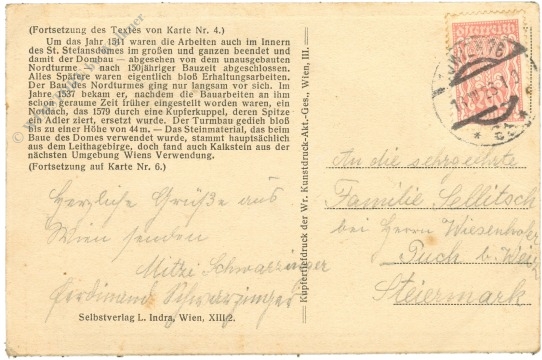 (Fortsetzung des Textes von Karte Nr. 4.)
Um das Jahr 1511 waren die Arbeiten auch im Innern
des St. Stefansdomes im großen und ganzen beendet und
damit der Dombau — abgesehen von dem unausgebauten
Nordturme — nach 150jähriger Bauzeit abgeschlossen.
Alles Spätere waren eigentlich bloß Erhaltungsarbeiten.
Der Bau des Nordturmes ging nur langsam vor sich. Im
Jahre 1537 bekam er, nachdem die Bauarbeiten an ihm
schon geraume Zeit früher eingestellt worden waren, ein
Notdach, das 1579 durch eine Kupferkuppel, deren Spitze
ein Adler ziert, ersetzt wurde. Der Turmbau gedieh bloß
bis zu einer Höhe von 44 m. — Das Steinmaterial, das beim
Baue des Domes verwendet wurde, stammt hauptsächlich
aus dem Leithagebirge, doch fand auch Kalkstein aus der
nächsten Umgebung Wiens Verwendung.
(Fortsetzung auf Karte Nr. 6.)
Herzliche Grüße aus
Wien senden
Mitzi Schwarzinger
Ferdinand Schwarzinger
Selbstverlag L. Indra, Wien, XIII/2.
Kupfertiefdruck der Wr. Kunstdruck-Akt.-Ges., Wien, III.
An die sehrgeehrte
Familie Sellitsch
bei Herrn Wiesenhofer
Puch b. Weiz
Steiermark